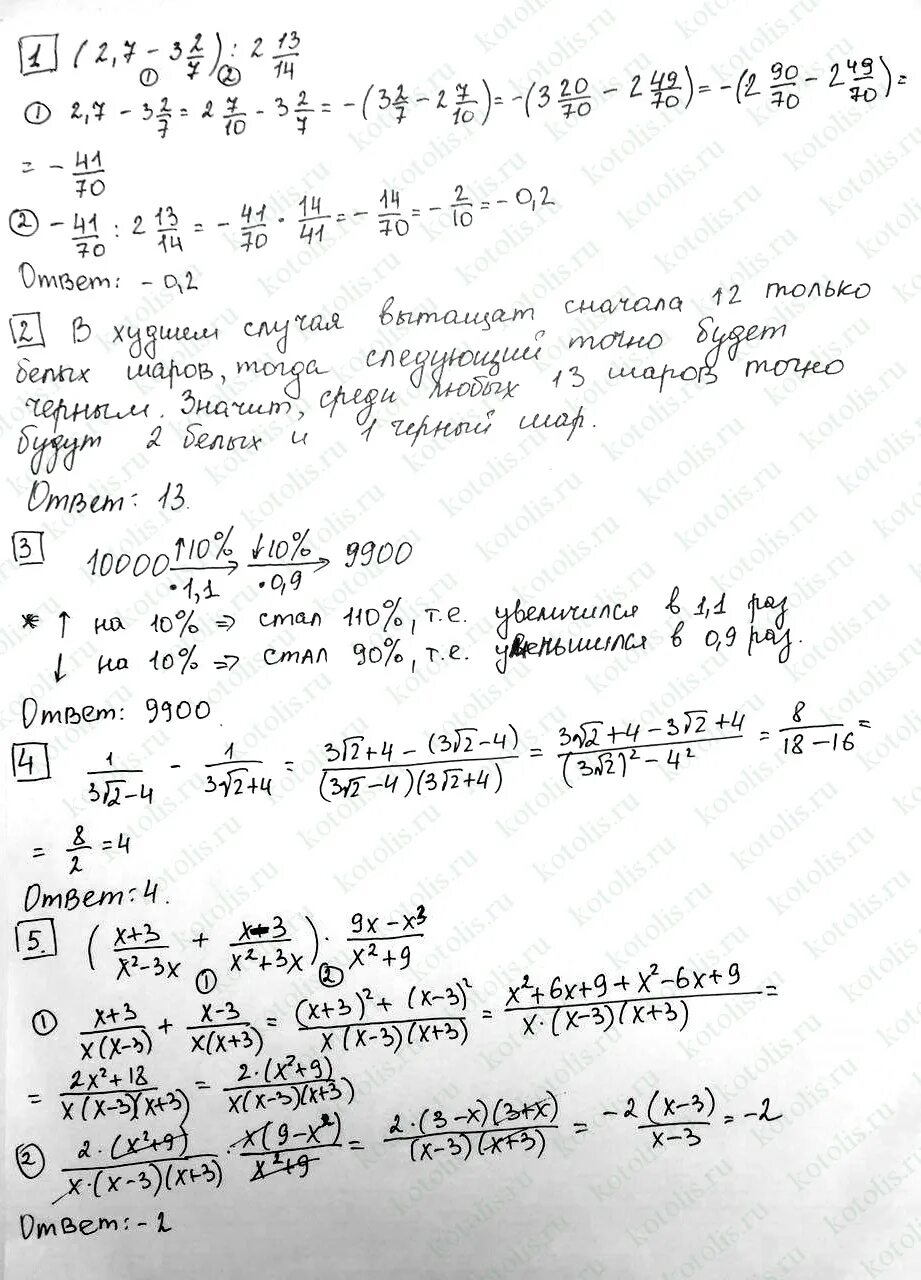 1 (2,7 − 3 2/7) : 2 13/14
① ②
① 2,7 − 3 2/7 = 2 7/10 − 3 2/7 = −(3 2/7 − 2 7/10) = −(3 20/70 − 2 49/70) = −(2 90/70 − 2 49/70) =
= − 41/70
② − 41/70 : 2 13/14 = − 41/70 · 14/41 = − 14/70 = − 2/10 = − 0,2
Ответ: − 0,2
2 В худшем случая вытащат сначала 12 только
белых шаров, тогда следующий точно будет
черным. Значит, среди любых 13 шаров точно
будут 2 белых и 1 черный шар.
Ответ: 13.
3 10000 ↑10% ·1,1 → ↓10% ·0,9 → 9900
* ↑ на 10% ⇒ стал 110%, т.е. увеличился в 1,1 раз
↓ на 10% ⇒ стал 90%, т.е. уменьшился в 0,9 раз.
Ответ: 9900.
4 1/(3√2−4) − 1/(3√2+4) = (3√2+4 − (3√2−4))/((3√2−4)(3√2+4)) = (3√2+4−3√2+4)/((3√2)² − 4²) = 8/(18−16) =
= 8/2 = 4
Ответ: 4.
5. ((x+3)/(x²−3x) + (x−3)/(x²+3x)) · (9x−x³)/(x²+9)
① ②
① (x+3)/(x(x−3)) + (x−3)/(x(x+3)) = ((x+3)² + (x−3)²)/(x(x−3)(x+3)) = (x²+6x+9+x²−6x+9)/(x·(x−3)(x+3)) =
= (2x²+18)/(x(x−3)(x+3)) = (2·(x²+9))/(x(x−3)(x+3))
② (2·(x²+9))/(x·(x−3)(x+3)) · (x(9−x²))/(x²+9) = (2·(3−x)(3+x))/((x−3)(x+3)) = (−2(x−3))/(x−3) = −2
Ответ: −2
kotolis.ru